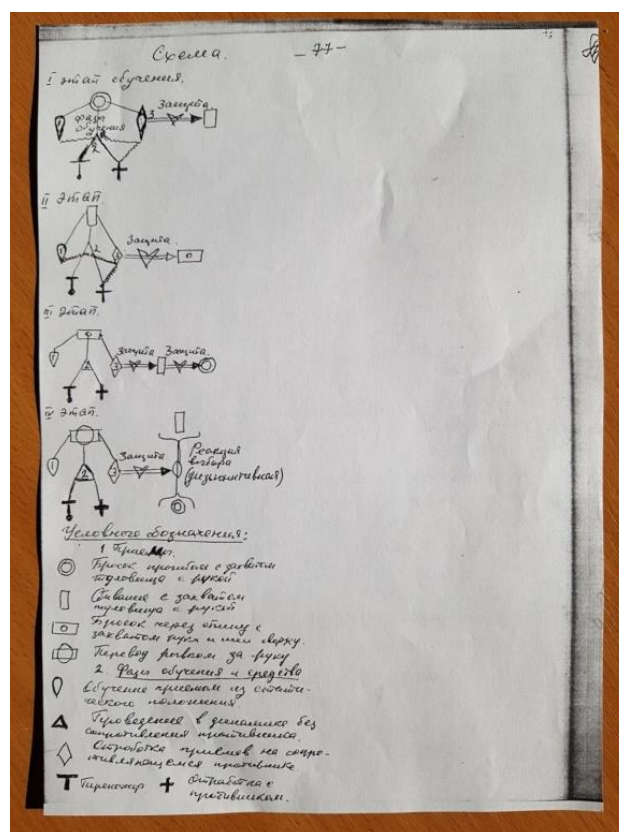 Схема. - 77 -
I этап обучения.
Защита
Фазы
обучения
1 2 3
II Этап.
Защита.
1 2 3
III Этап.
Защита Защита.
1 2 3
IV Этап.
Защита
Реакция
выбора
(дизъюнктивная)
1 2 3
Условного обозначения:
1. Приемы.
Бросок прогибом с захватом
туловища с рукой
Сбивание с захватом
туловища с рукой
Бросок через спину с
захватом руки и шеи сверху.
Перевод рывком за руку
2. Фазы обучения и средства
Обучение приемам из статич-
ческого положения.
Проведение в динамике без
сопротивления противника.
Отработка приемов на сопро-
тивляющемся противнике
Тренажер Отработка с
противником.